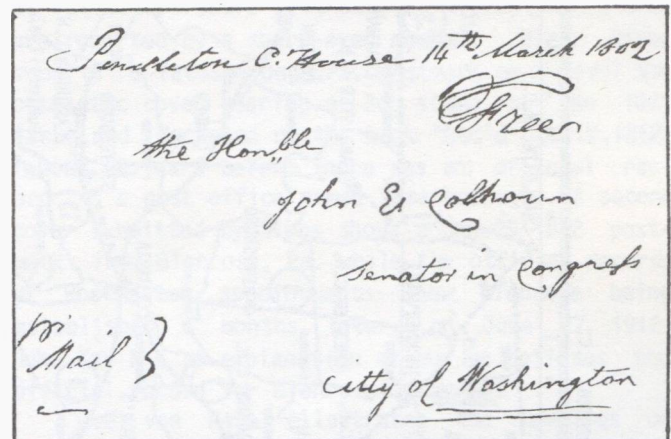 Pendleton C. House 14th March 1802
Free
the Honble
John Es Colhoun
Senator in Congress
pr
Mail
Citty of Washington